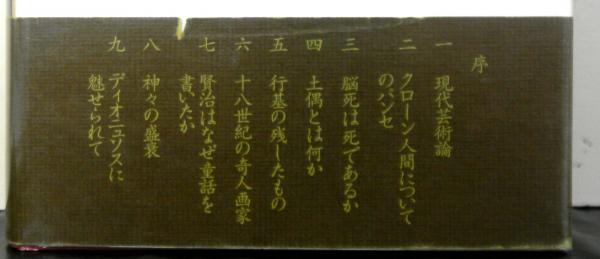 序
一 現代芸術論
二 クローン人間について
のパンセ
三 脳死は死であるか
四 土偶とは何か
五 行基の残したもの
六 十八世紀の奇人画家
七 賢治はなぜ童話を
書いたか
八 神々の盛衰
九 ディオニュソスに
魅せられて